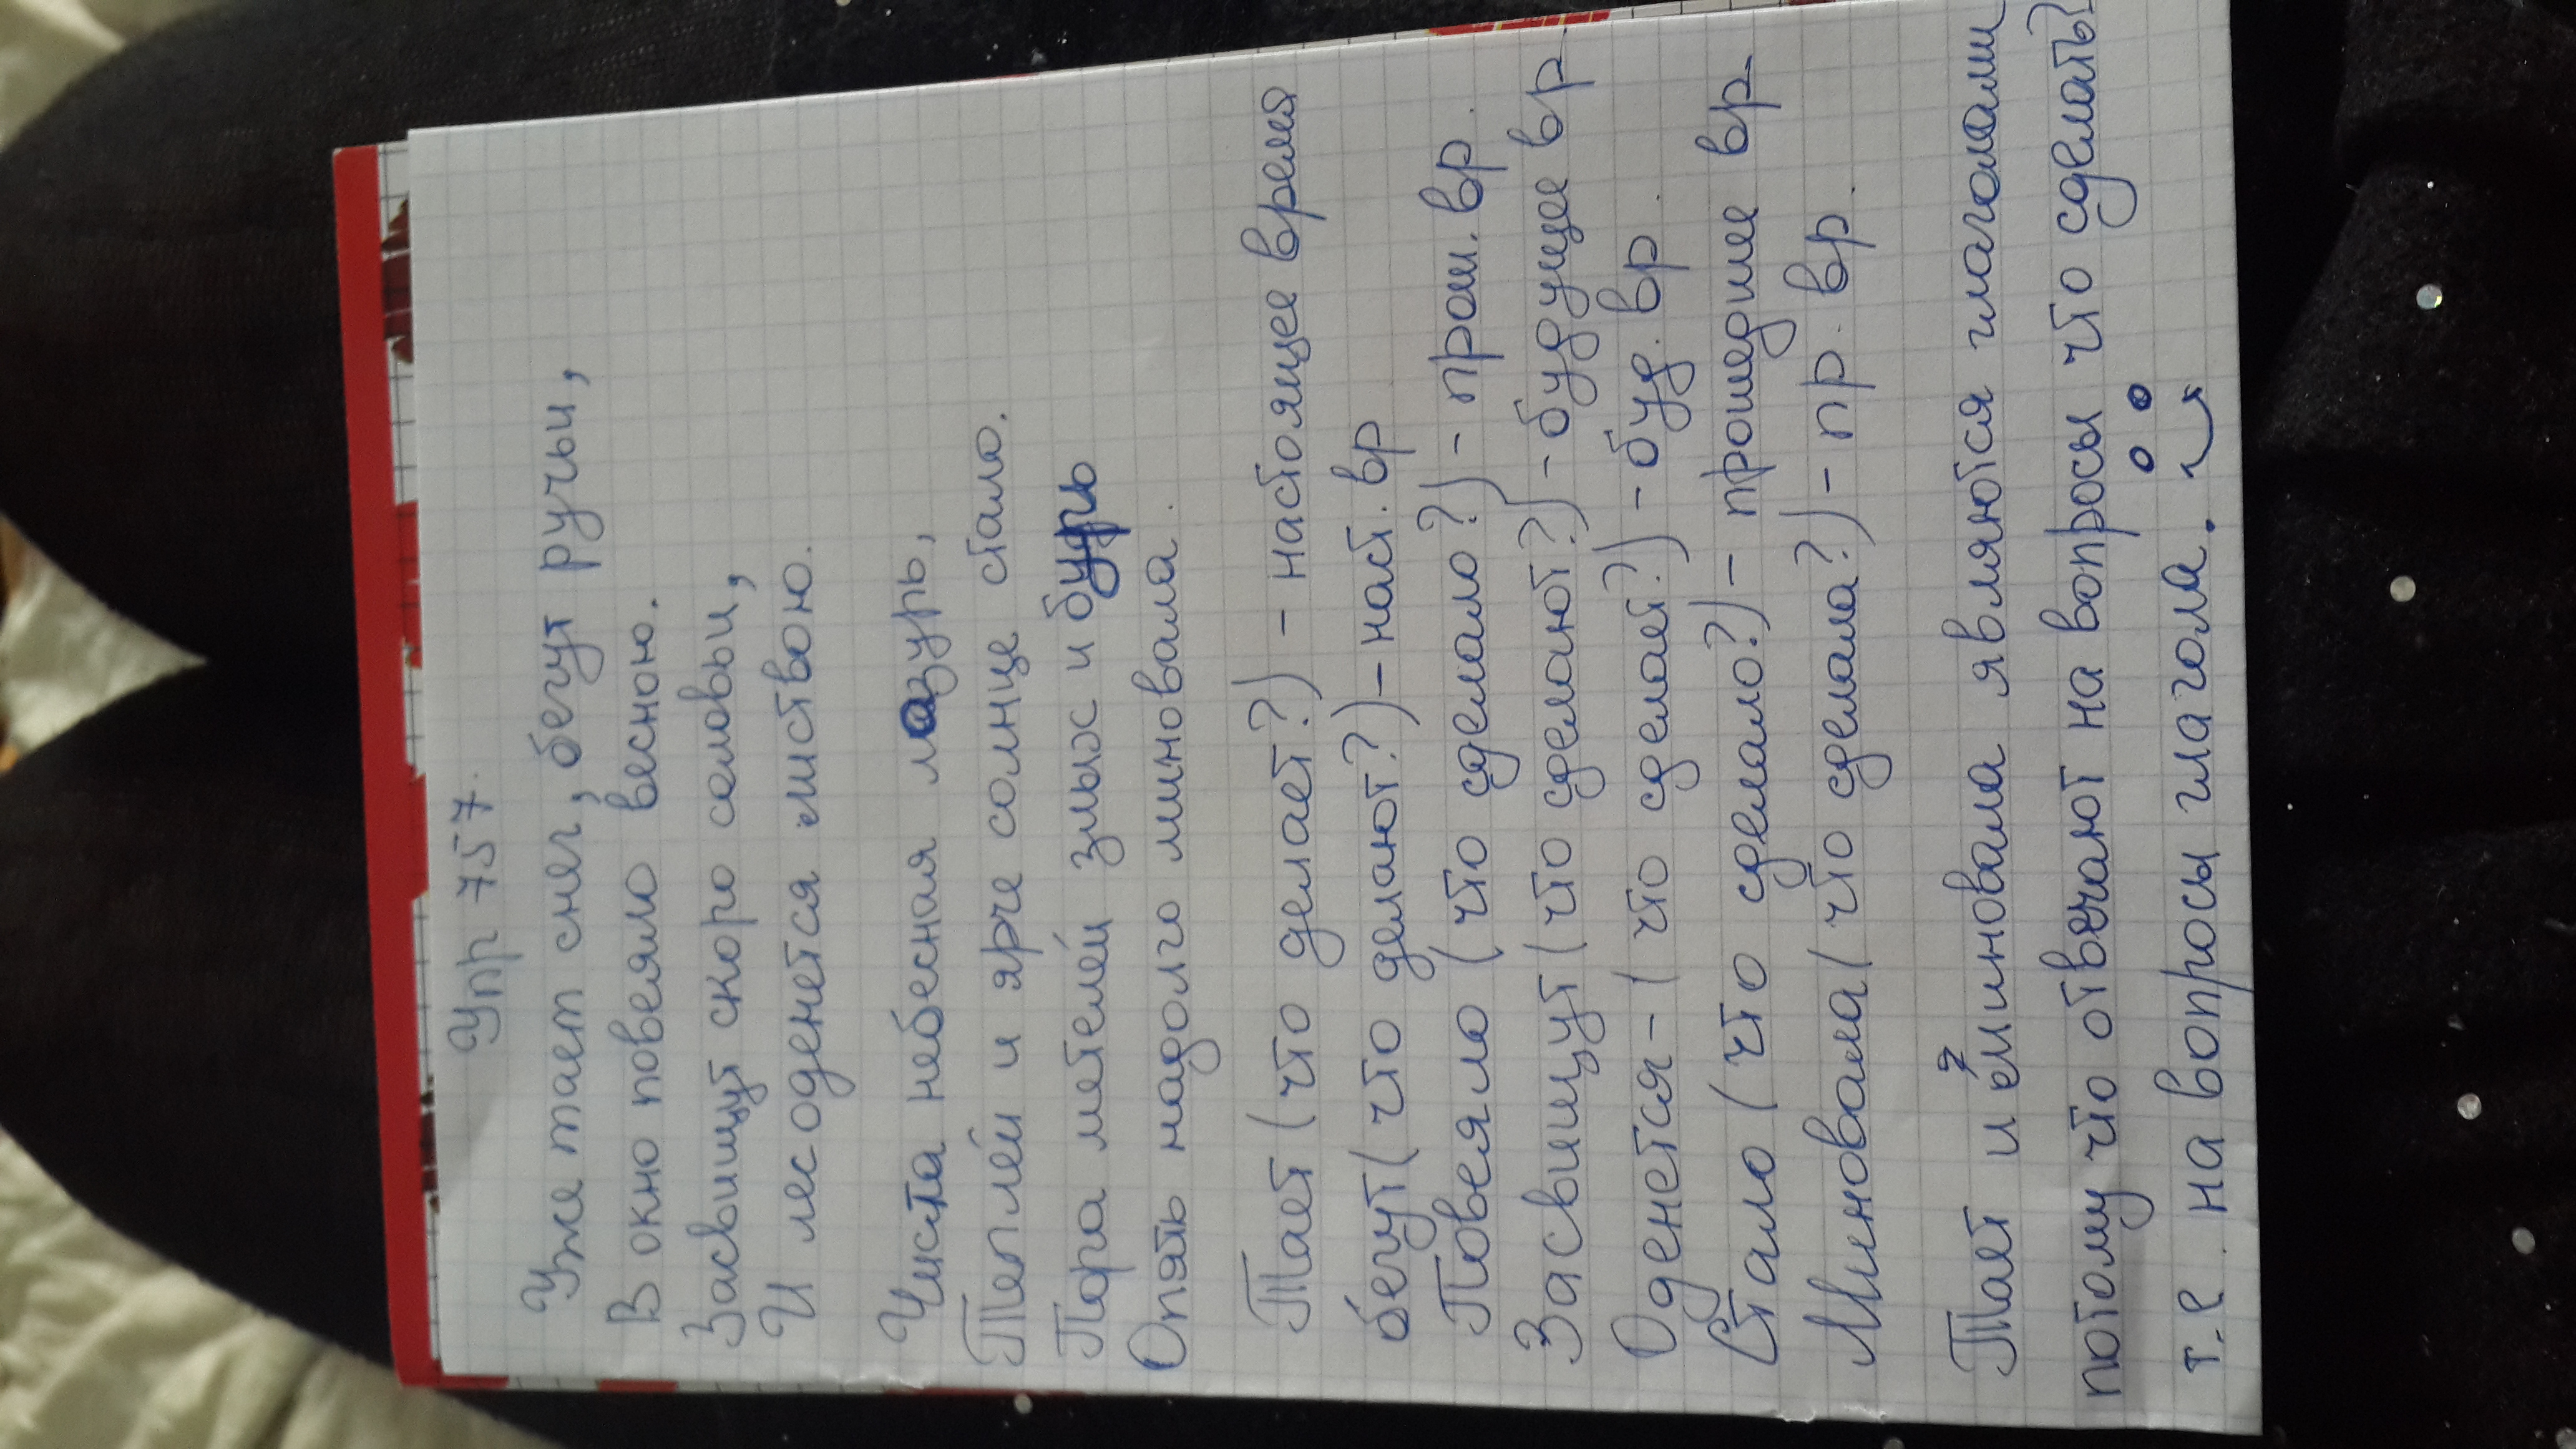 Упр 757.
Уже тает снег, бегут ручьи,
В окно повеяло весною.
Засвищут скоро соловьи,
И лес оденется листвою.
Чиста небесная лазурь,
Теплей и ярче солнце стало.
Пора метелей злых и бурь
Опять надолго миновала.
Тает (что делает?) - настоящее время
бегут (что делают?) - наст. вр
Повеяло (что сделало?) - прош. вр.
Засвищут (что сделают?) - будущее вр
Оденется - (что сделает?) - буд. вр.
Стало (что сделало?) - прошедшие вр
Миновала (что сделала?) - пр. вр.
Тает и миновала являются глаголами
потому что отвечают на вопросы что сделать?
т.е. на вопросы глагола.